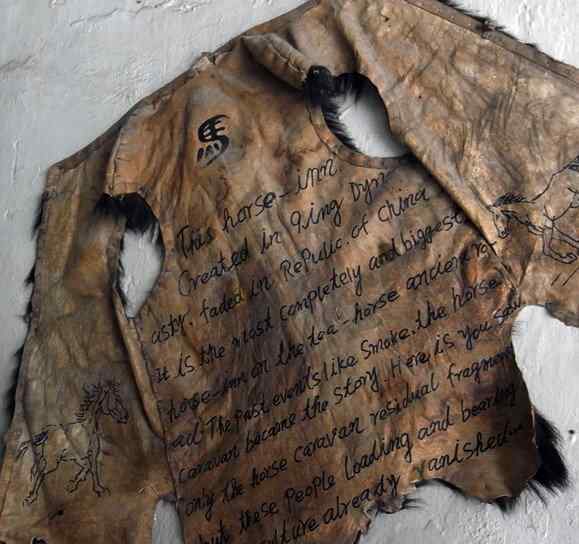 This horse-inn
Created in Qing Dyn
asty. faded in RePulic. of China
It is the most completely and biggest
horse-inn on the tea-horse ancient ro-
ad. The Past events like Smoke. the horse
Caravan become the story. Here is you saw
only the horse caravan residual fragment
but these People Loading and bearing
culture already vanished...